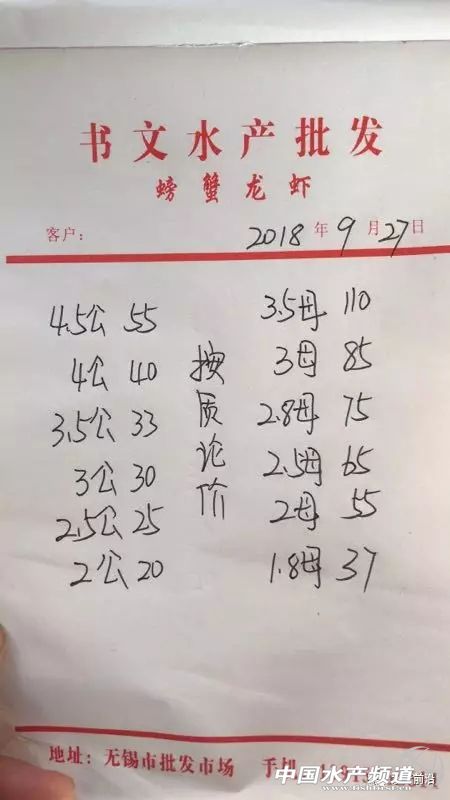 书文水产批发
螃蟹龙虾
客户: 2018年9月27日
4.5公 55
4公 40
3.5公 33
3公 30
2.5公 25
2公 20
按质论价
3.5母 110
3母 85
2.8母 75
2.5母 65
2母 55
1.8母 37
地址: 无锡市批发市场 手机
中国水产频道
www.fishfirst.cn
前沿